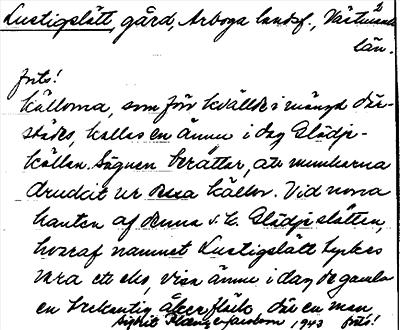 Lustigslätt, gård, Arboga landsf., Västmanl.
län.
forts!
källorna, som för kvällde i mängd där-
städes, kallas en ännu i dag Glädje-
källan. Sägnen berättar, att munkarna
druckit ur dessa källor. Vid norra
kanten af denna s.k. Glädjeslätten
hvaraf namnet Lustigslätt tyckes
vara ett eko, visa ännu i dag de gamla
en trekantig åkerfläck där en man
1943 forts!